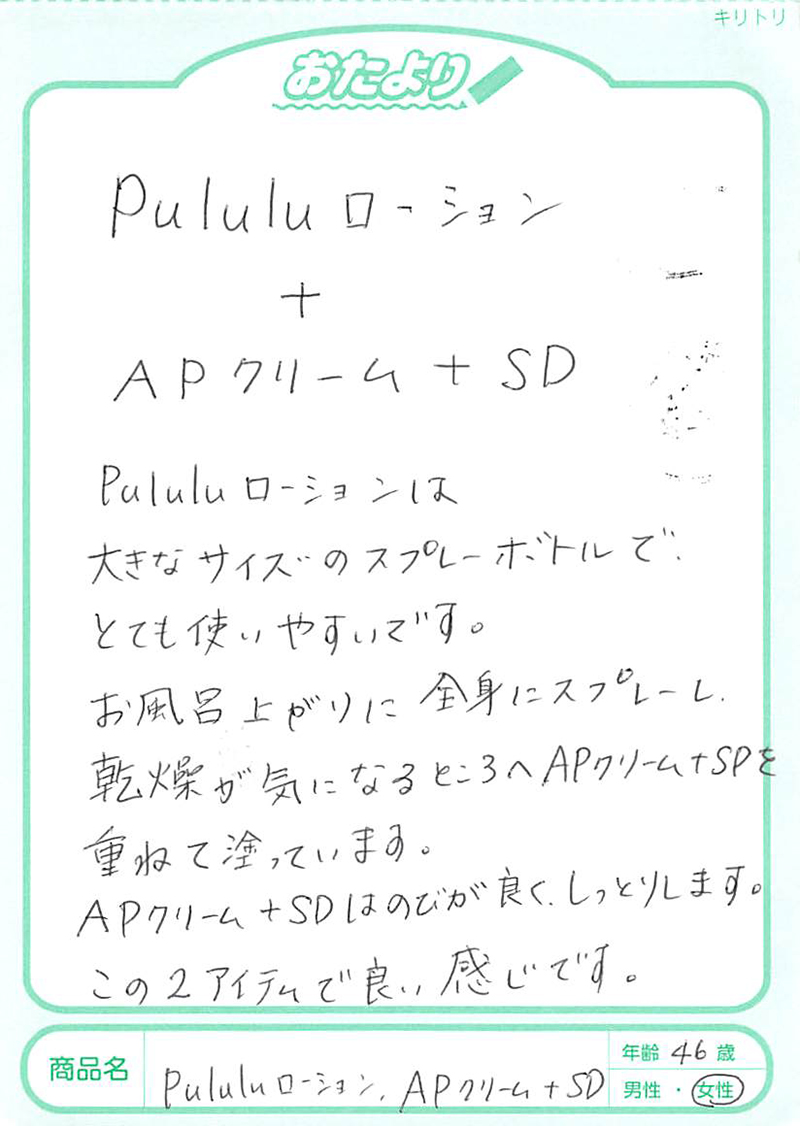 キリトリ
おたより
Pululuローション
+
APクリーム+SD
Pululuローションは
大きなサイズのスプレーボトルで、
とても使いやすいです。
お風呂上がりに全身にスプレーし、
乾燥が気になるところへAPクリーム+SPを
重ねて塗っています。
APクリーム+SDはのびが良く、しっとりします。
この2アイテムで良い感じです。
商品名
Pululuローション、APクリーム+SD
年齢 46 歳
男性・女性